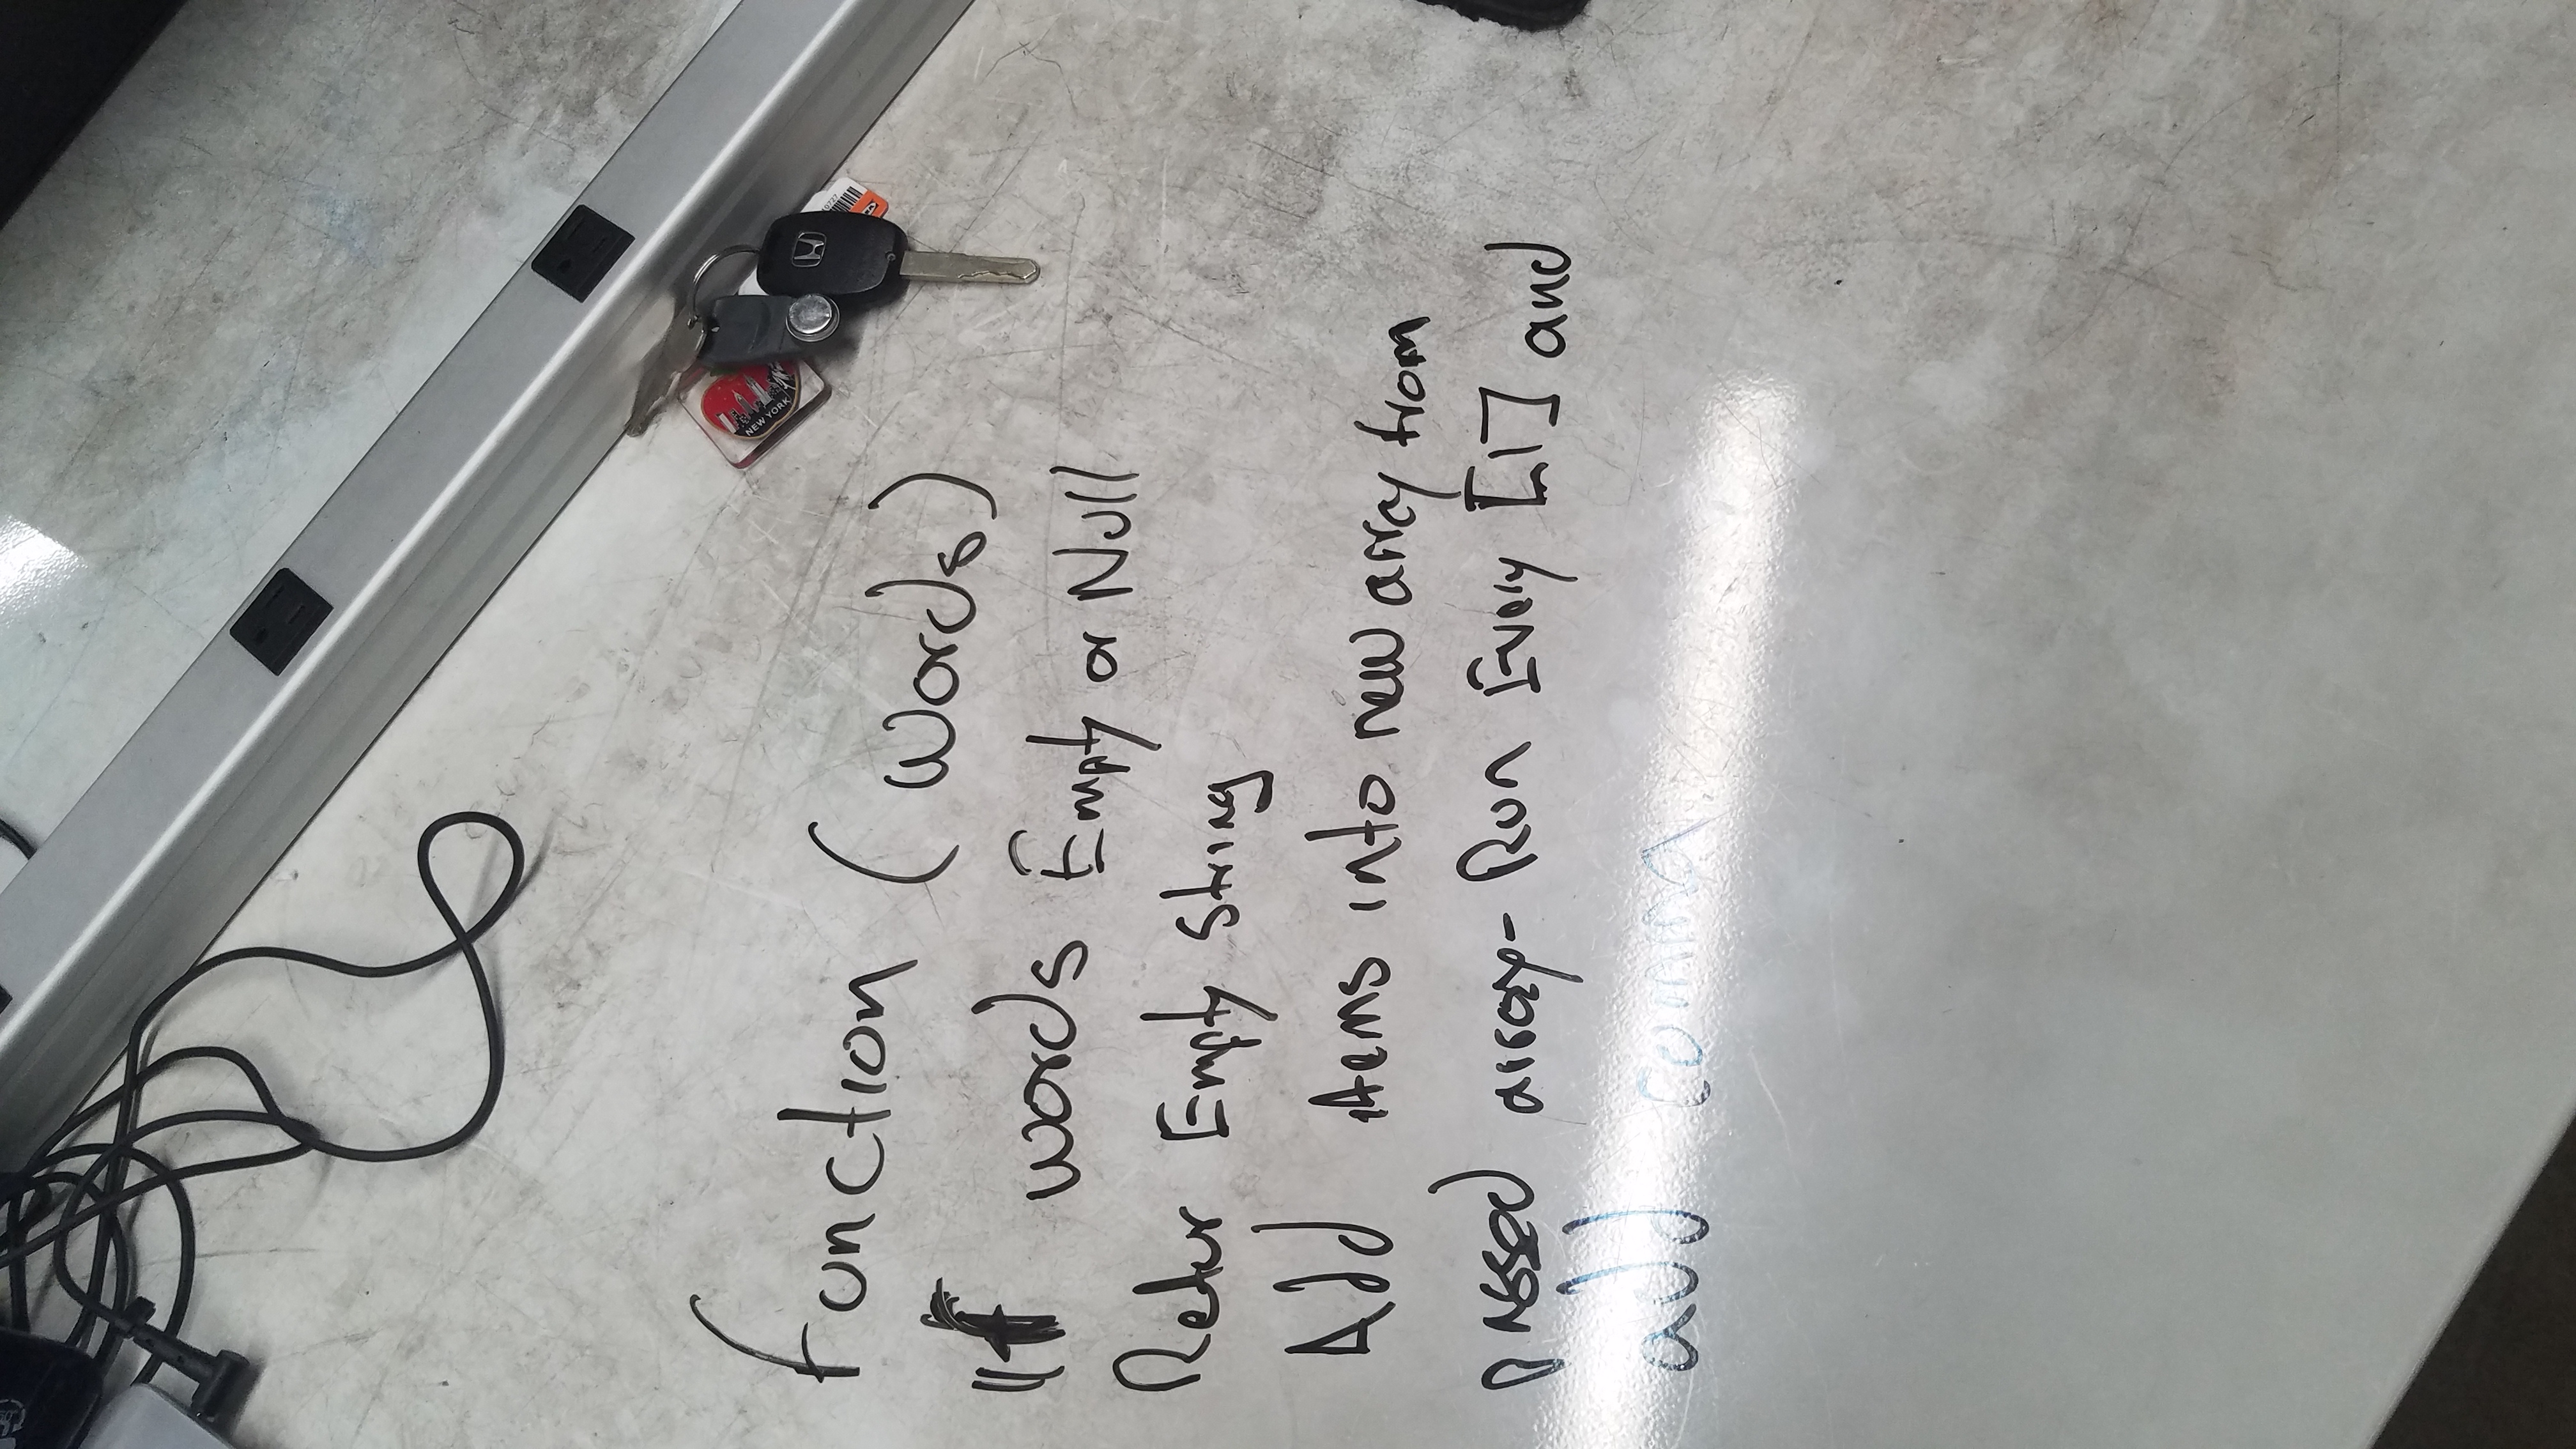 NEW YORK
Function (Words)
If words Empty or Null
Retur Empty String
Add items into new array from
passed array- Run Every [1] and
add comma